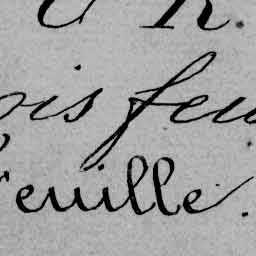 R.
ois feu
feuille.